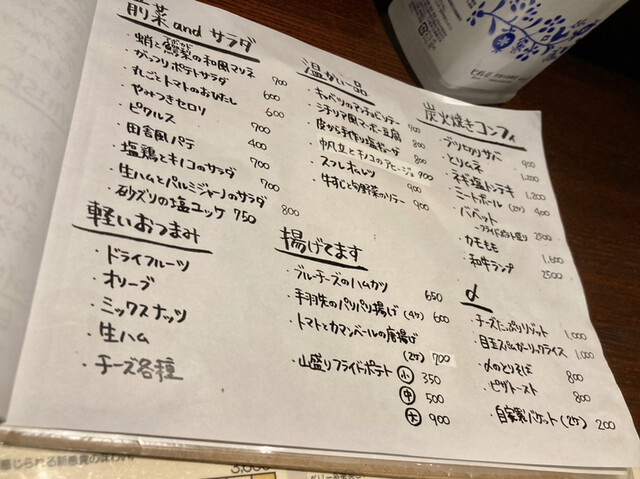 前菜 and サラダ
・蛸と鰐梨の和風マリネ 700
アボカド
・がっつりポテトサラダ 600
・丸ごとトマトのおひたし 600
・やみつきセロリ 700
・ピクルス 400
・田舎風パテ 700
・塩鶏とキノコのサラダ 700
・生ハムとパルミジャーノのサラダ 800
・砂ズリの塩ユッケ 750
軽いおつまみ
・ドライフルーツ
・オリーブ
・ミックスナッツ
・生ハム
・チーズ各種
温かい一品
・キャベツのアンチョビソテー 700
・シチリア風マーボー豆腐 800
・皮から手作り塩ギョーザ 800
・帆立とキノコのアヒージョ 900
・スフレオムレツ 900
・牛すじと旬野菜のソテー 900
揚げてます
・ブルーチーズのハムカツ 650
・手羽先のパリパリ揚げ (4ケ) 600
・トマトとカマンベールの唐揚げ
(2ケ) 700
・山盛りフライドポテト 小 350
中 500
大 900
炭火焼きコンフィ
・ブツ切りサバ 900
・とりムネ 1,200
・ネギ塩トンテキ 1,200
・ミートボール (2ケ) 400
・バベット
〜フライドポテト盛り 2500
・カモモモ 1,600
・和牛ランプ 2500
〆
・チーズたっぷりリゾット 1,000
・目玉スパムガーリックライス 1,000
・〆のとりそば 800
・ピザトースト 800
・自家製バケット (2ケ) 200
感じられる新感覚の味わい